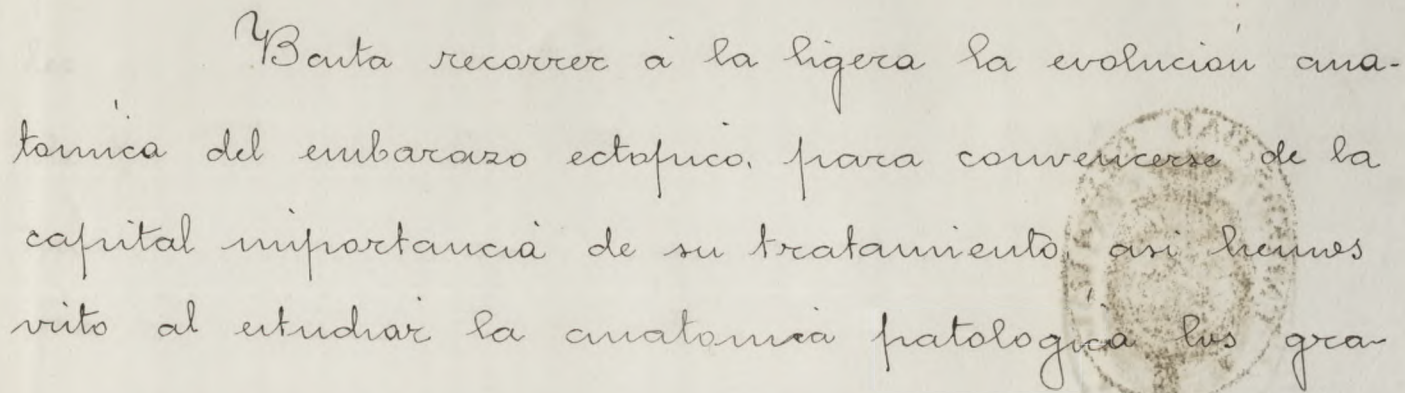 Basta recorrer á la ligera la evolución ana-
tómica del embarazo ectopico, para convencerse de la
capital importancia de su tratamiento, asi hemos
visto al estudiar la anatomia patologica los gra-